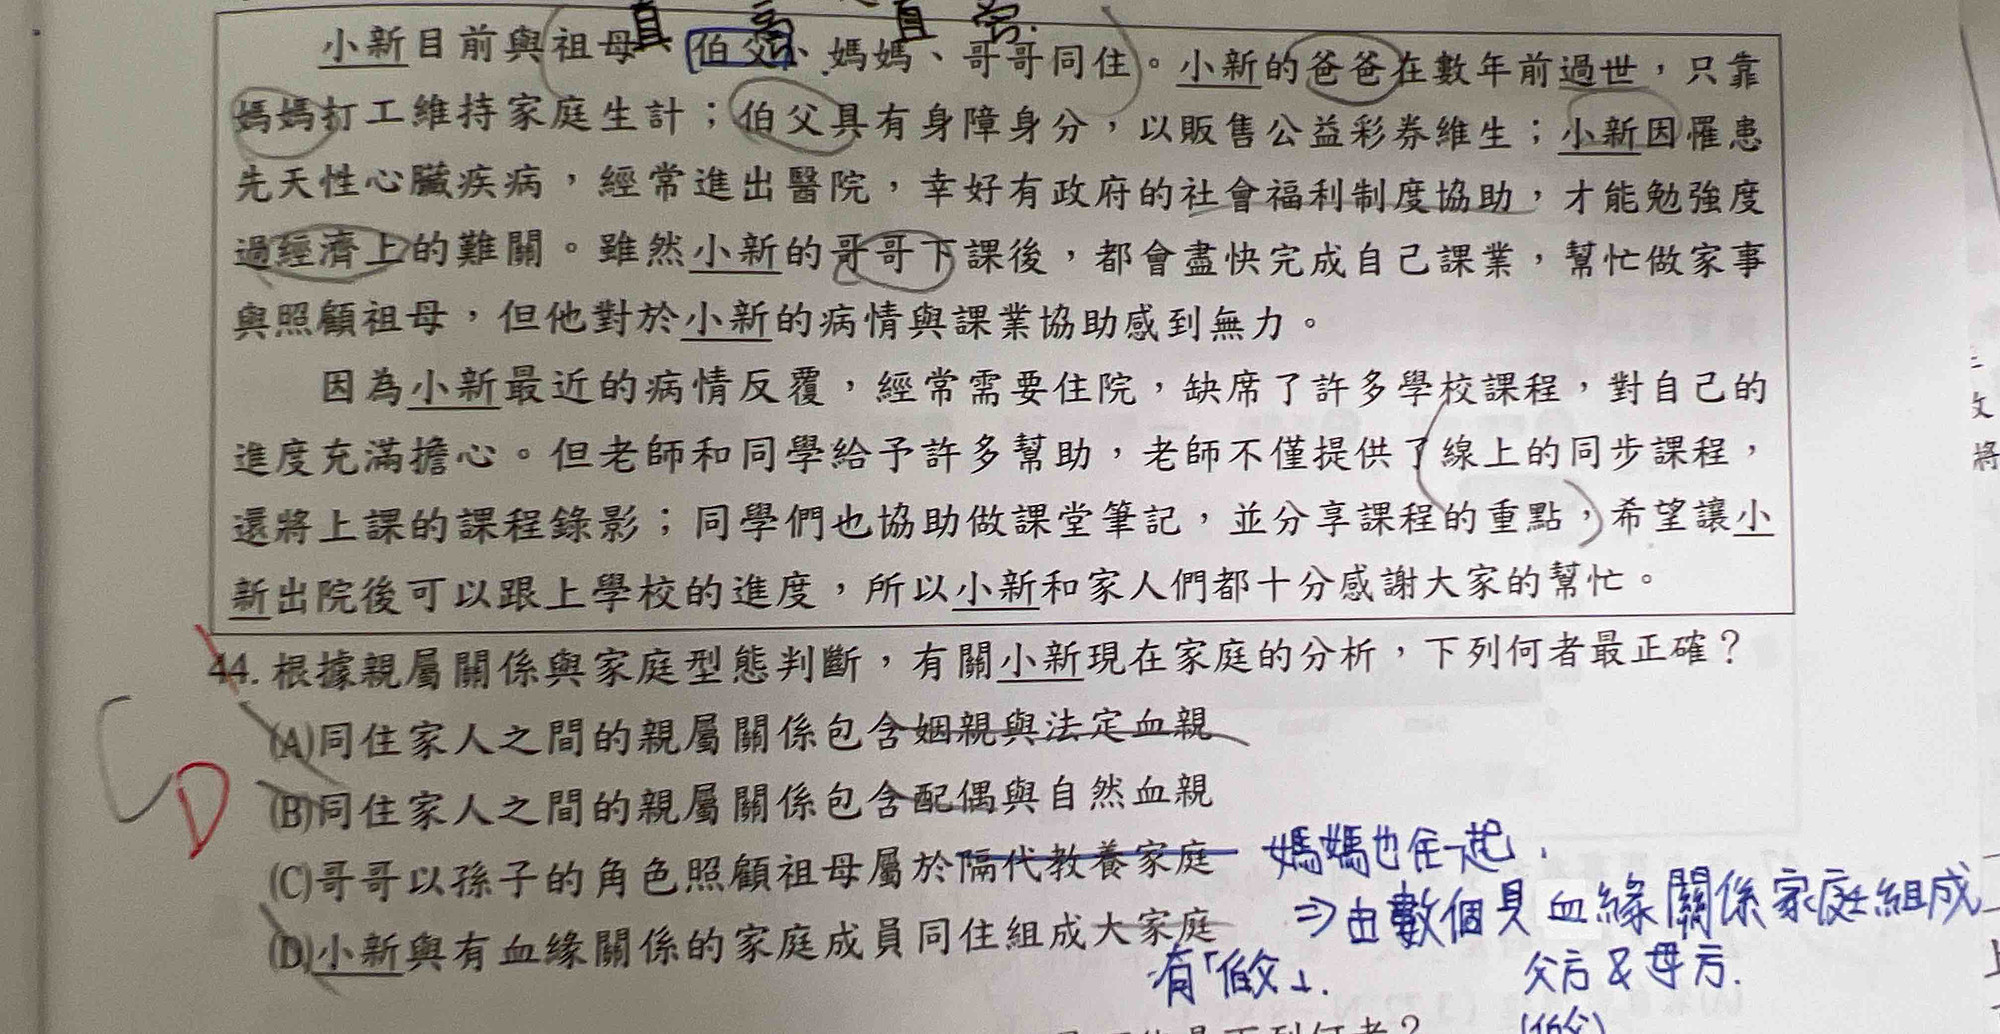 直 高 直 常
小新目前與祖母、伯父、媽媽、哥哥同住。小新的爸爸在數年前過世，只靠
媽媽打工維持家庭生計；伯父具有身障身分，以販售公益彩券維生；小新因罹患
先天性心臟疾病，經常進出醫院，幸好有政府的社會福利制度協助，才能勉強度
過經濟上的難關。雖然小新的哥哥下課後，都會盡快完成自己課業，幫忙做家事
與照顧祖母，但他對於小新的病情與課業協助感到無力。
因為小新最近的病情反覆，經常需要住院，缺席了許多學校課程，對自己的
進度充滿擔心。但老師和同學給予許多幫助，老師不僅提供了線上的同步課程，
還將上課的課程錄影；同學們也協助做課堂筆記，並分享課程的重點，希望讓小
新出院後可以跟上學校的進度，所以小新和家人們都十分感謝大家的幫忙。
44. 根據親屬關係與家庭型態判斷，有關小新現在家庭的分析，下列何者最正確？
(A)同住家人之間的親屬關係包含姻親與法定血親
C
D
(B)同住家人之間的親屬關係包含配偶與自然血親
(C)哥哥以孫子的角色照顧祖母屬於隔代教養家庭 媽媽也住一起，
⇒由數個具血緣關係家庭組成
(D)小新與有血緣關係的家庭成員同住組成大家庭
有「伯父」. 父方&母方.
(伯父)
下列何者？
將